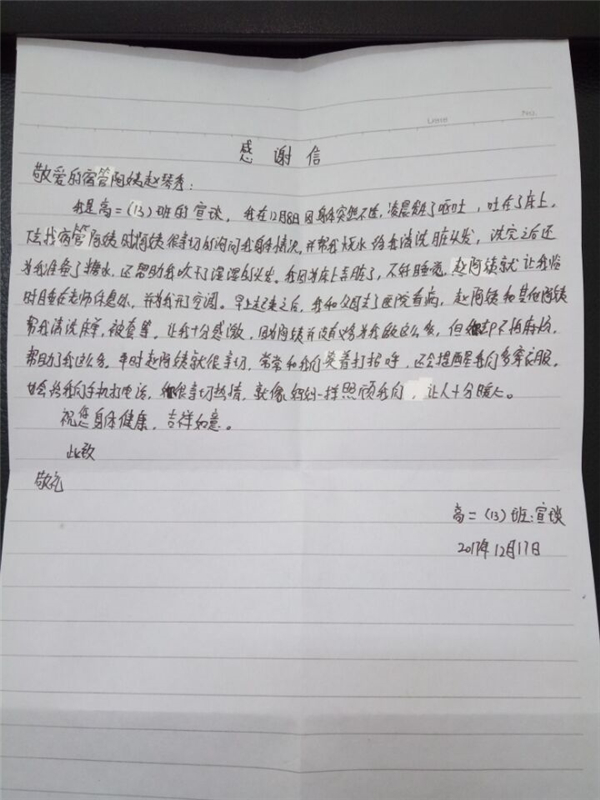 感谢信
敬爱的宿管阿姨赵琴秀:
我是高二(13)班的宣谈,我在12月8日因身体突然不适,凌晨起了呕吐,吐在了床上,
去找宿管阿姨时阿姨很亲切的询问我身体情况,并帮我烧水给我清洗脏头发,洗完之后还
为我准备了糖水,还帮助我吹干了湿湿的头发。我因为床上弄脏了,不好睡觉,赵阿姨就让我临
时睡在老师休息处,并为我开了空调。早上起来之后,我和父母去了医院看病,赵阿姨和其他阿姨
帮我清洗床单,被套等,让我十分感激,因为阿姨并没有义务为我做这么多,但她却不怕麻烦,
帮助了我这么多,平时赵阿姨就很亲切,常常和我们笑着打招呼,还会提醒我们多穿衣服,
也会给我们手机打电话,她很亲切热情,就像妈妈一样照顾我们,让人十分暖心。
祝您身体健康,吉祥如意。
此致
敬礼
高二(13)班:宣谈
2017年12月17日